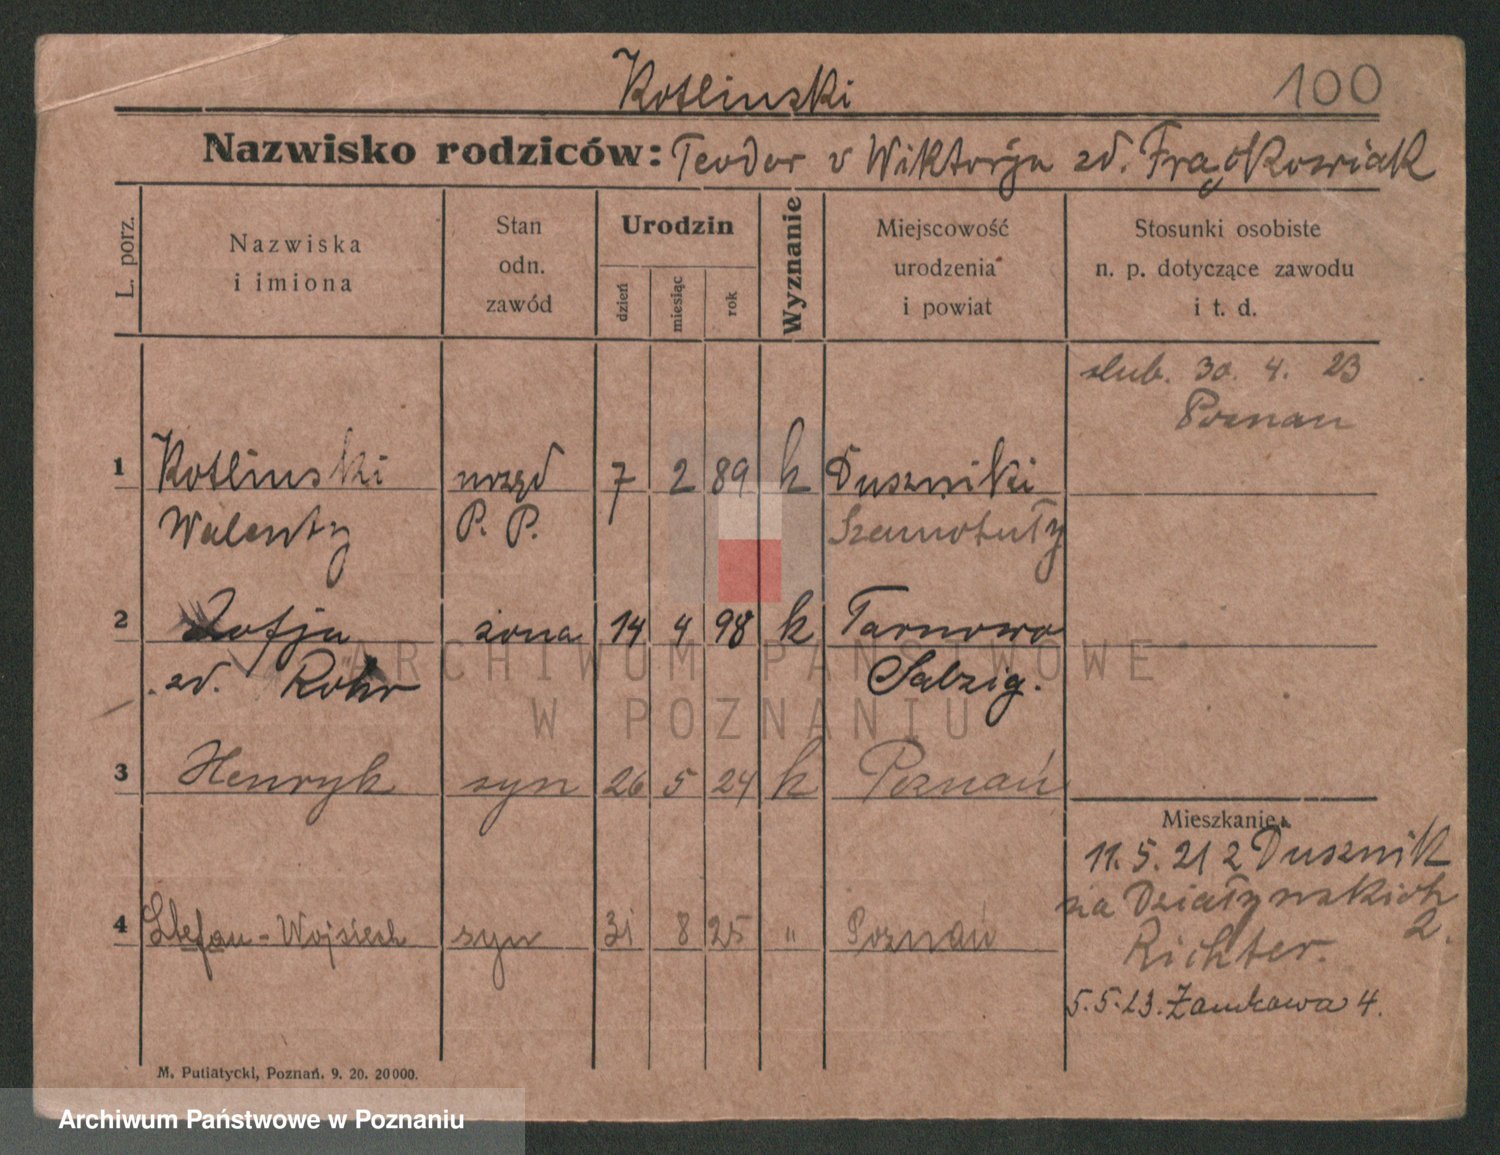 Kotlinski 100
Nazwisko rodziców: Teodor v Wiktorja zd. Frąckowiak
L. porz.
Nazwiska i imiona
Stan odn. zawód
Urodzin
dzień
miesiąc
rok
Wyznanie
Miejscowość urodzenia i powiat
Stosunki osobiste n. p. dotyczące zawodu i t. d.
slub. 30. 4. 23
Poznan
1 Kotlinski urzęd 7 2 89 k Duszniki
Walenty P. P. Szamotuły
2 Zofja zona 14 4 98 k Tarnowo
zd. Rohr Salzig.
3 Henryk syn 26 5 24 k Poznań
Mieszkanie
11. 5. 21 z Dusznik
na Działynskich
2.
4 Stefan-Wojciech syn 31 8 25 " Poznań
Richter.
5.5.23. Zamkowa 4.
M. Putiatycki, Poznań. 9. 20. 20000.
ARCHIWUM PAŃSTWOWE
W POZNANIU
Archiwum Państwowe w Poznaniu